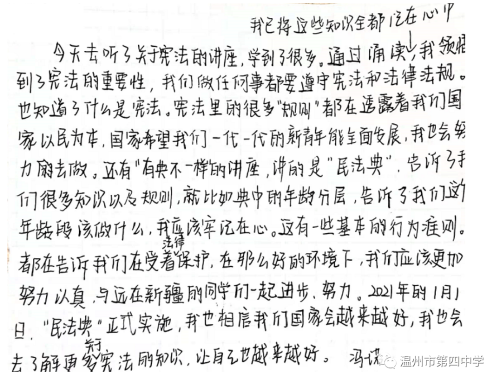 我已将这些知识全都记在心中
今天去听了关于宪法的讲座，学到了很多。通过诵读，我领悟
到了宪法的重要性，我们做任何事都要遵守宪法和法律法规。
也知道了什么是宪法。宪法里的很多“规则”都在透露着我们国
家以民为本，国家希望我们一代一代的新青年能全面发展，我也会努
力的去做。还有“有典不一样的讲座，讲的是“民法典”，告诉了我
们很多知识以及规则，就比如典中的年龄分层，告诉了我们这个
年龄段该做什么，我应该牢记在心。还有一些基本的行为准则。
法律
都在告诉我们在受着保护，在那么好的环境下，我们应该更加
努力认真，与远在新疆的同学们一起进步、努力。2021年的1月1
日，“民法典”正式实施，我也相信我们国家会越来越好，我也会
去了解更多宪法的知识，让自己也越来越好。 冯
温州市第四中学